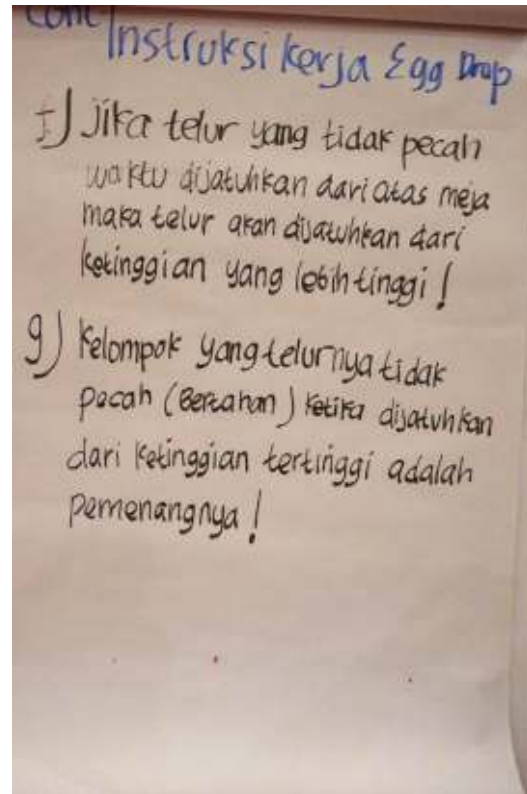 Cont Instruksi Kerja Egg Drop
f) Jika telur yang tidak pecah
waktu dijatuhkan dari atas meja
maka telur akan dijatuhkan dari
ketinggian yang lebih tinggi!
g) Kelompok yang telurnya tidak
pecah (Bertahan) ketika dijatuhkan
dari ketinggian tertinggi adalah
pemenangnya!